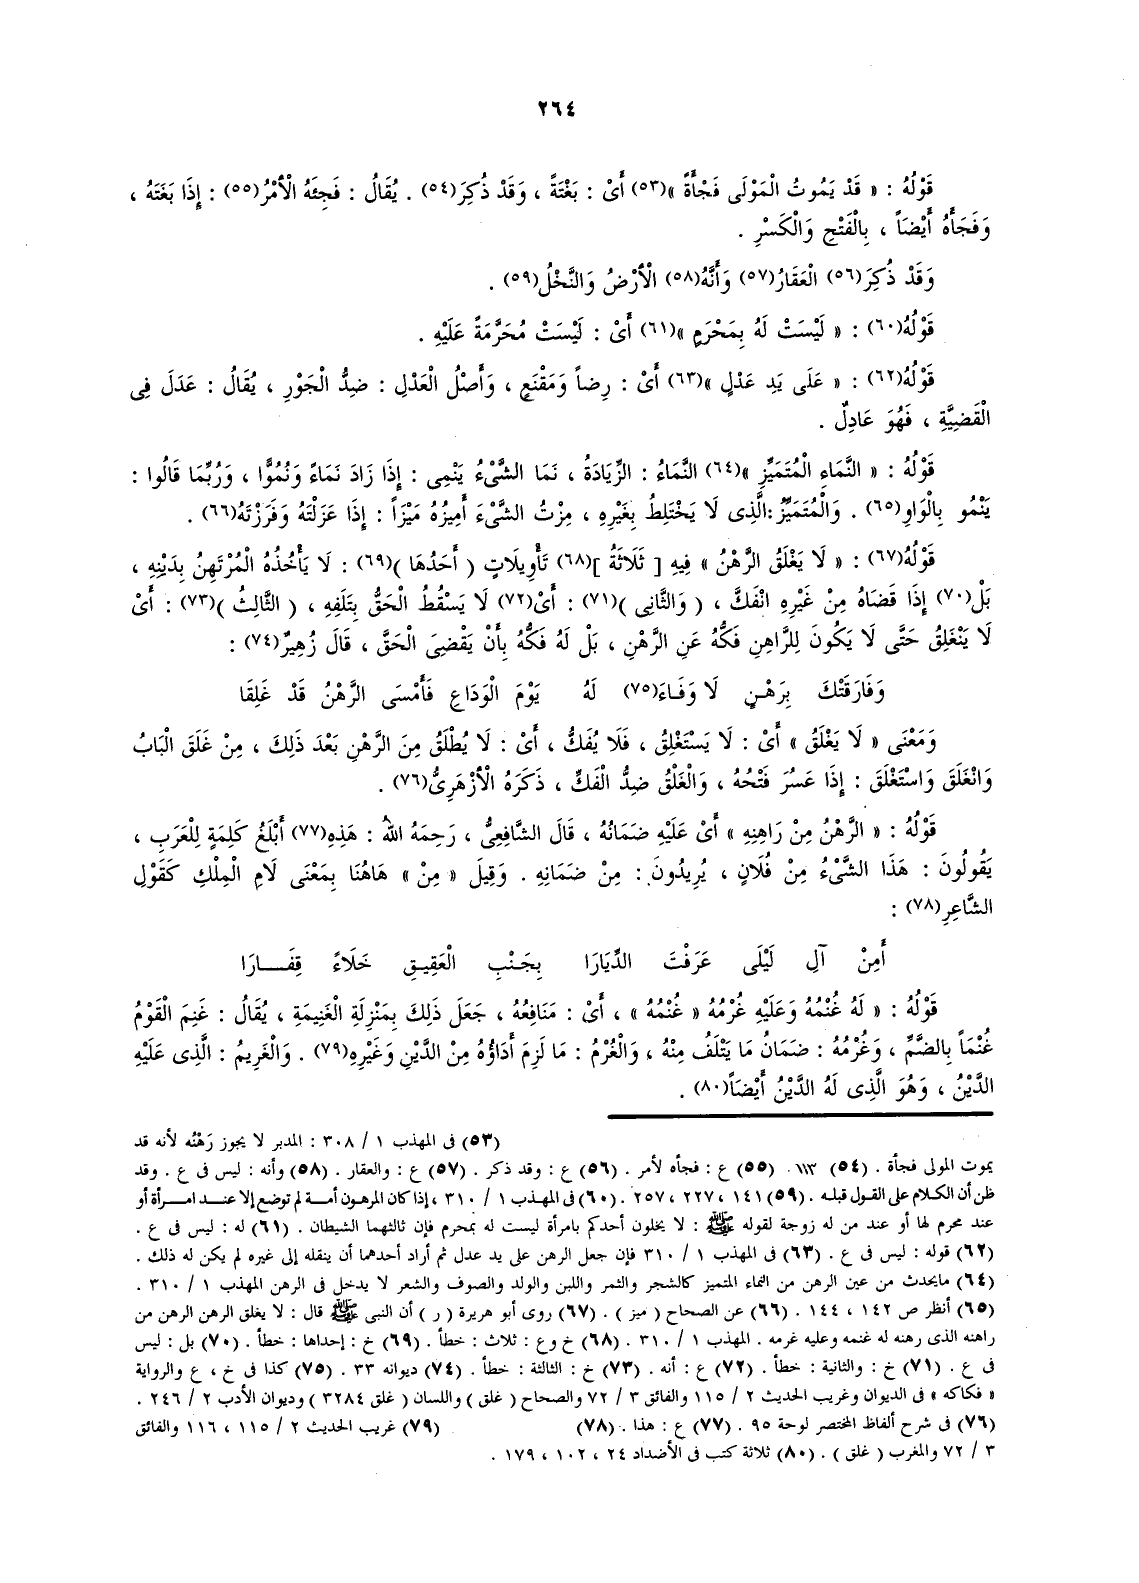 ٢٦٤
قَوْلُهُ : « قَدْ يَمُوتُ الْمَوْلَى فَجْأَةً »(٥٣) أَىْ : بَغْتَةً ، وَقَدْ ذُكِرَ(٥٤) . يُقَالُ : فَجِئَهُ الْأَمْرُ(٥٥) : إِذَا بَغَتَهُ ،
وَفَجَأَهُ أَيْضَاً ، بِالْفَتْحِ وَالْكَسْرِ .
وَقَدْ ذُكِرَ(٥٦) الْعَقَارُ(٥٧) وَأَنَّهُ(٥٨) الْأَرْضُ وَالنَّخْلُ(٥٩) .
قَوْلُهُ(٦٠) : « لَيْسَتْ لَهُ بِمَحْرَمٍ »(٦١) أَىْ : لَيْسَتْ مُحَرَّمَةً عَلَيْهِ .
قَوْلُهُ(٦٢) : « عَلَى يَدِ عَدْلٍ »(٦٣) أَىْ : رِضاً وَمَقْنَعٍ ، وَأَصْلُ الْعَدْلِ : ضِدُّ الْجَوْرِ ، يُقَالُ : عَدَلَ فِى
الْقَضِيَّةِ ، فَهُوَ عَادِلٌ .
قَوْلُهُ : « النَّمَاءِ الْمُتَمَيِّزِ »(٦٤) النَّمَاءُ : الزِّيَادَةُ ، نَمَا الشَّىْءُ يَنْمِى : إِذَا زَادَ نَمَاءً وَنُمُوًّا ، وَرُبَّمَا قَالُوا :
يَنْمُو بِالْوَاوِ(٦٥) . وَالْمُتَمَيِّزُ:الَّذِى لَا يَخْتَلِطُ بِغَيْرِهِ ، مِزْتُ الشَّىْءَ أَمِيزُهُ مَيْزَاً : إِذَا عَزَلْتَهُ وَفَرَزْتَهُ(٦٦) .
قَوْلُهُ(٦٧) : « لَا يَغْلَقُ الرَّهْنُ » فِيهِ [ ثَلَاثَةُ ](٦٨) تَأْوِيلَاتٍ ( أَحَدُهَا )(٦٩) : لَا يَأْخُذُهُ الْمُرْتَهِنُ بِدَيْنِهِ ،
بَلْ(٧٠) إِذَا قَضَاهُ مِنْ غَيْرِهِ انْفَكَّ ، ( وَالثَّانِى )(٧١) : أَىْ(٧٢) لَا يَسْقُطُ الْحَقُّ بِتَلَفِهِ ، ( الثَّالِثُ )(٧٣) : أَىْ
لَا يَنْغَلِقُ حَتَّى لَا يَكُونَ لِلرَّاهِنِ فَكُّهُ عَنِ الرَّهْنِ ، بَلْ لَهُ فَكُّهُ بِأَنْ يَقْضِىَ الْحَقَّ ، قَالَ زُهَيرٌ(٧٤) :
وَفَارَقَتْكَ بِرَهْنٍ لَا وَفَاءَ(٧٥) لَهُ يَوْمَ الْوَدَاعِ فَأَمْسَى الرَّهْنُ قَدْ غَلِقَا
وَمَعْنَى « لَا يَغْلَقُ » أَىْ : لَا يَسْتَغْلِقُ ، فَلَا يُفَكُّ ، أَىْ : لَا يُطْلَقُ مِنَ الرَّهْنِ بَعْدَ ذَلِكَ ، مِنْ غَلَقَ الْبَابُ
وَانْغَلَقَ وَاسْتَغْلَقَ : إِذَا عَسُرَ فَتْحُهُ ، وَالْغَلْقُ ضِدُّ الْفَكِّ ، ذَكَرَهُ الْأَزْهَرِىُّ(٧٦) .
قَوْلُهُ : « الرَّهْنُ مِنْ رَاهِنِهِ » أَىْ عَلَيْهِ ضَمَانُهُ ، قَالَ الشَّافِعِىُّ ، رَحِمَهُ اللهُ : هَذِهِ(٧٧) أَبْلَغُ كَلِمَةٍ لِلْعَرَبِ ،
يَقُولُونَ : هَذَا الشَّىْءُ مِنْ فُلَانٍ ، يُرِيدُونَ : مِنْ ضَمَانِهِ . وَقِيلَ « مِنْ » هَاهُنَا بِمَعْنَى لَامِ الْمِلْكِ كَقَوْلِ
الشَّاعِرِ(٧٨) :
أَمِنْ آلِ لَيْلَى عَرَفْتَ الدِّيَارَا بِجَنْبِ الْعَقِيقِ خَلَاءً قِفَــارَا
قَوْلُهُ : « لَهُ غُنْمُهُ وَعَلَيْهِ غُرْمُهُ « غُنْمُهُ » ، أَىْ : مَنَافِعُهُ ، جَعَلَ ذَلِكَ بِمَنْزِلَةِ الْغَنِيمَةِ ، يُقَالُ : غَنِمَ الْقَوْمُ
غُنْمَاً بِالضَّمِّ ، وَغُرْمُهُ : ضَمَانُ مَا يَتْلَفُ مِنْهُ ، وَالْغُرْمُ : مَا لَزِمَ أَدَاؤُهُ مِنَ الدَّيْنِ وَغَيْرِهِ(٧٩) . وَالْغَرِيمُ : الَّذِى عَلَيْهِ
الدَّيْنُ ، وَهُوَ الَّذِى لَهُ الدَّيْنُ أَيْضَاً(٨٠) .
(٥٣) فى المهذب ١ / ٣٠٨ : المدبر لا يجوز رَهْنُه لأنه قد
يموت المولى فجأة . (٥٤) ١١٣ . (٥٥) ع : فجأه لأمر . (٥٦) ع : وقد ذكر . (٥٧) ع : والعقار . (٥٨) وأنه : ليس فى ع . وقد
ظن أن الكلام على القول قبله . (٥٩) ١٤١ ، ٢٢٧ ، ٢٥٧ . (٦٠) فى المهذب ١ / ٣١٠ ، إذا كان المرهون أمــة لم توضع إلا عنــد امــرأة أو
عند محرم لها أو عند من له زوجة لقوله ﷺ : لا يخلون أحدكم بامرأة ليست له بمحرم فإن ثالثهما الشيطان . (٦١) له : ليس فى ع .
(٦٢) قوله : ليس فى ع . (٦٣) فى المهذب ١ / ٣١٠ فإن جعل الرهن على يد عدل ثم أراد أحدهما أن ينقله إلى غيره لم يكن له ذلك .
(٦٤) مايحدث من عين الرهن من النماء المتميز كالشجر والثمر واللبن والولد والصوف والشعر لا يدخل فى الرهن المهذب ١ / ٣١٠ .
(٦٥) أنظر ص ١٤٢ ، ١٤٤ . (٦٦) عن الصحاح ( ميز ) . (٦٧) روى أبو هريرة ( ر ) أن النبى ﷺ قال : لا يغلق الرهن الرهن من
راهنه الذى رهنه له غنمه وعليه غرمه . المهذب ١ / ٣١٠ . (٦٨) خ و ع : ثلاث : خطأ . (٦٩) خ : إحداها : خطأ . (٧٠) بل : ليس
فى ع . (٧١) خ : والثانية : خطأ . (٧٢) ع : أنه . (٧٣) خ : الثالثة : خطأ . (٧٤) ديوانه ٣٣ . (٧٥) كذا فى خ ، ع والرواية
« فكاكه » فى الديوان وغريب الحديث ٢ / ١١٥ والفائق ٣ / ٧٢ والصحاح ( غلق ) واللسان ( غلق ٣٢٨٤ ) وديوان الأدب ٢ / ٢٤٦ .
(٧٦) فى شرح ألفاظ المختصر لوحة ٩٥ . (٧٧) ع : هذا . (٧٨) (٧٩) غريب الحديث ٢ / ١١٥ ، ١١٦ والفائق
٣ / ٧٢ والمغرب ( غلق ) . (٨٠) ثلاثة كتب فى الأضداد ٢٤ ، ١٠٢ ، ١٧٩ .